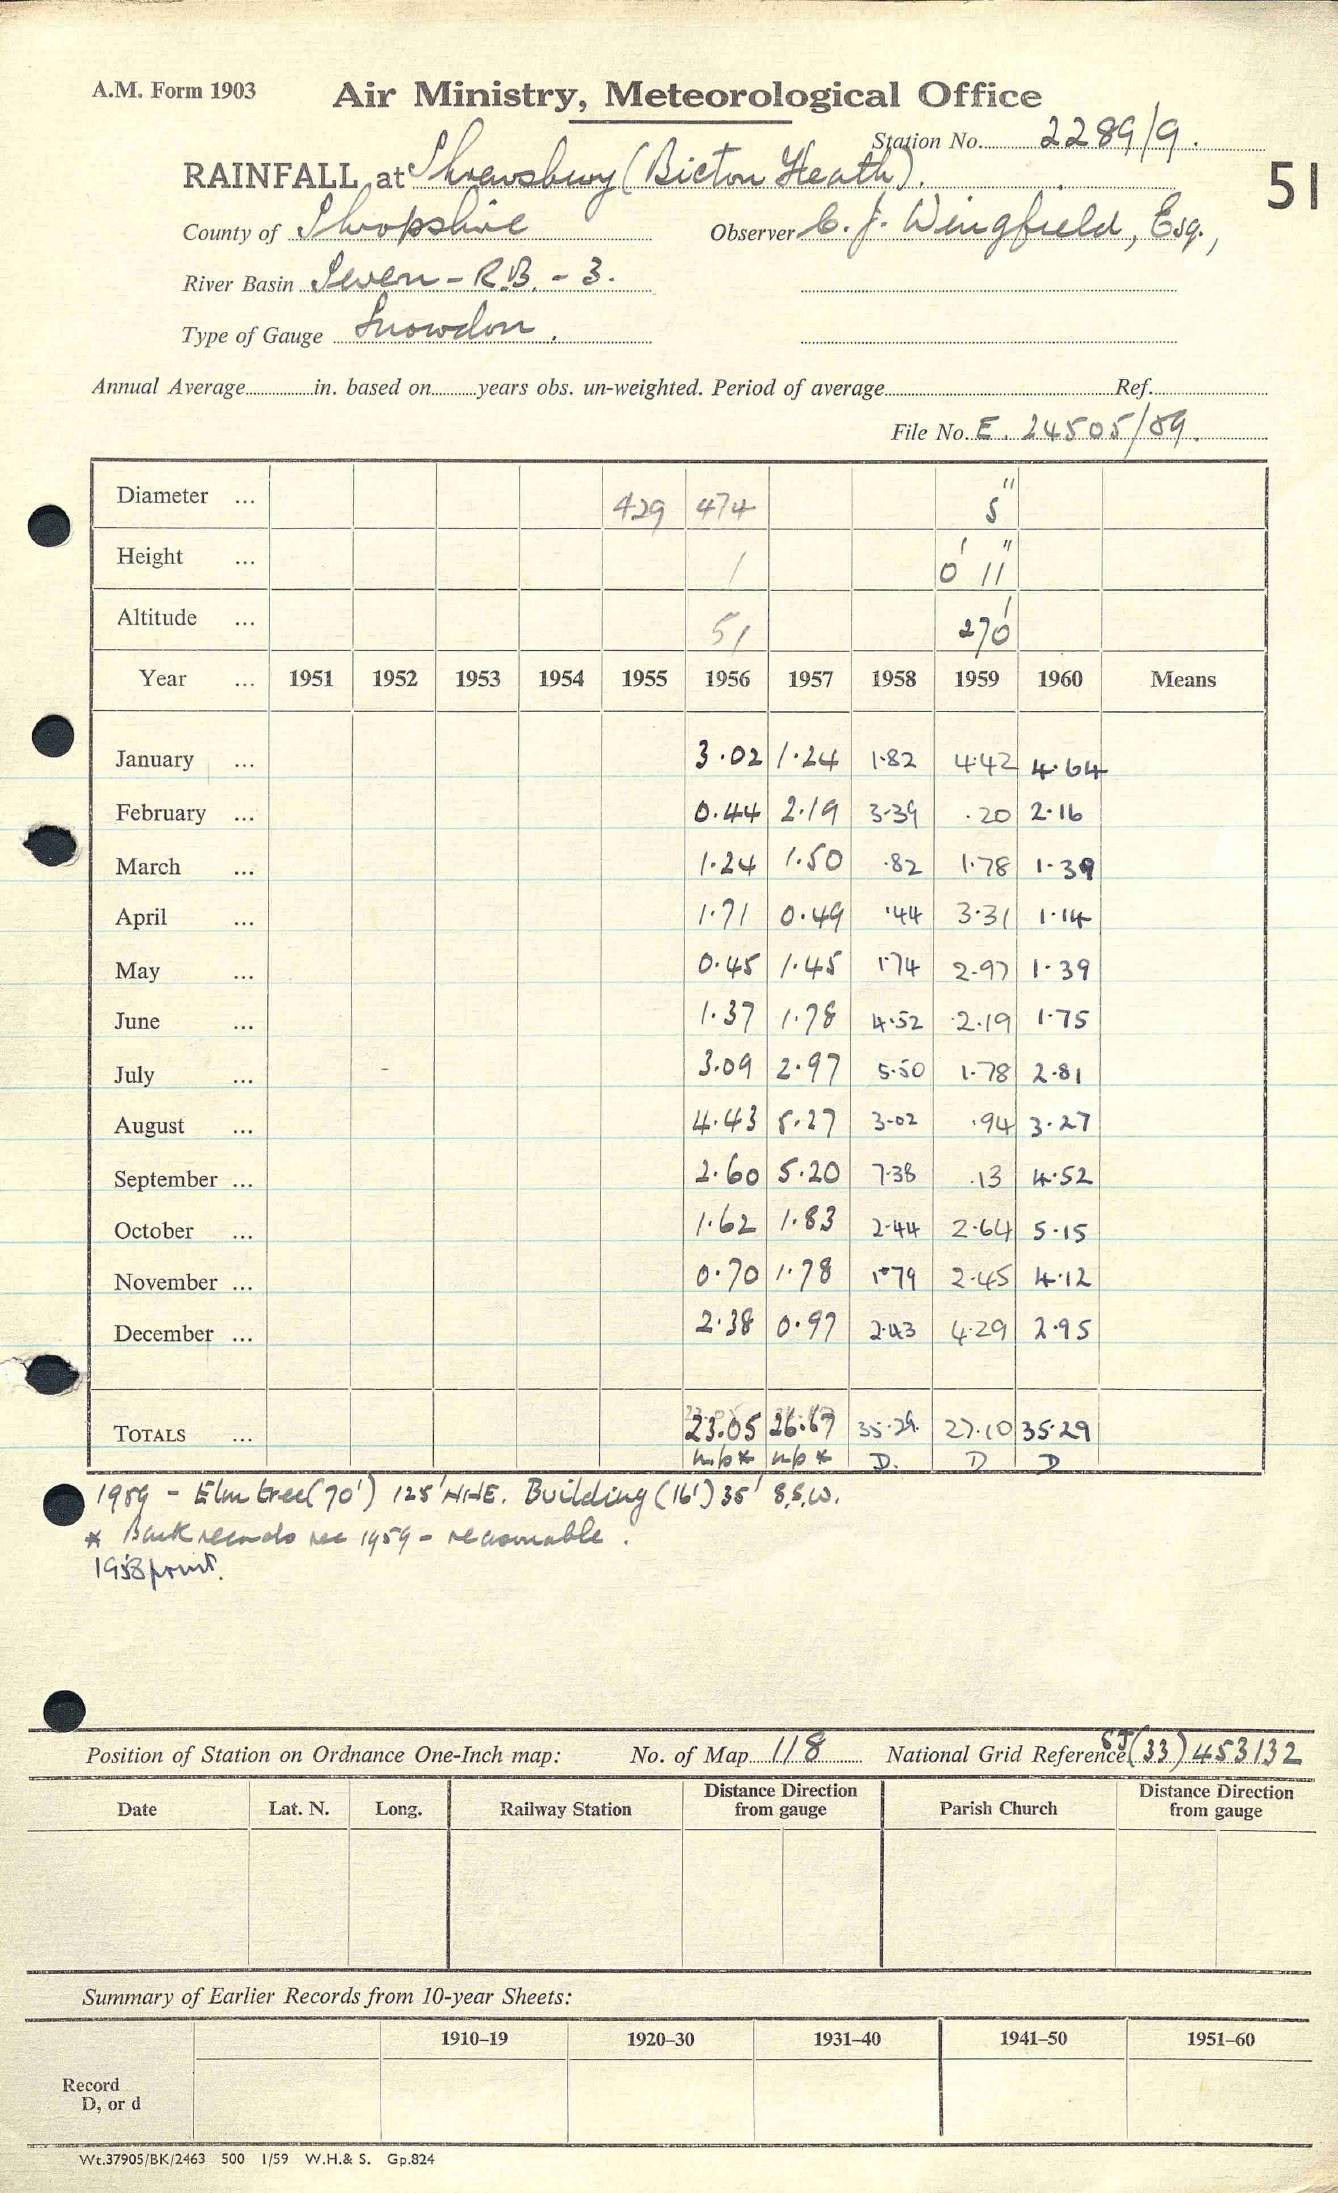 A.M. Form 1903 Air Ministry, Meteorological Office
Station No. 2289/9.
RAINFALL at Shrewsbury (Bicton Heath). 51
County of Shropshire Observer C. J. Wingfield, Esq.,
River Basin Severn - R.B. - 3.
Type of Gauge Snowdon.
Annual Average in. based on years obs. un-weighted. Period of average Ref.
File No. E. 24505/59.
Diameter ... 429 474 5"
Height ... 1 0' 11"
Altitude ... 51 270'
Year ... 1951 1952 1953 1954 1955 1956 1957 1958 1959 1960 Means
January ... 3.02 1.24 1.82 4.42 4.64
February ... 0.44 2.19 3.39 .20 2.16
March ... 1.24 1.50 .82 1.78 1.39
April ... 1.71 0.49 .44 3.31 1.14
May ... 0.45 1.45 1.74 2.97 1.39
June ... 1.37 1.78 4.52 2.19 1.75
July ... 3.09 2.97 5.50 1.78 2.81
August ... 4.43 5.27 3.02 .94 3.27
September ... 2.60 5.20 7.38 .13 4.52
October ... 1.62 1.83 2.44 2.64 5.15
November ... 0.70 1.78 1.79 2.45 4.12
December ... 2.38 0.97 2.43 4.29 2.95
TOTALS ... 23.05 26.67 35.29. 27.10 35.29
n.p* n.p* D. D D
1959 - Elm tree (70') 125' NNE. Building (16') 35' S.S.W.
* Back records rec 1959 - reasonable.
1958
Position of Station on Ordnance One-Inch map: No. of Map 118 National Grid Reference SJ (33) 453132
Date Lat. N. Long. Railway Station Distance Direction from gauge Parish Church Distance Direction from gauge
Summary of Earlier Records from 10-year Sheets:
1910–19 1920–30 1931–40 1941–50 1951–60
Record
D, or d
Wt.37905/BK/2463 500 1/59 W.H.& S. Gp.824